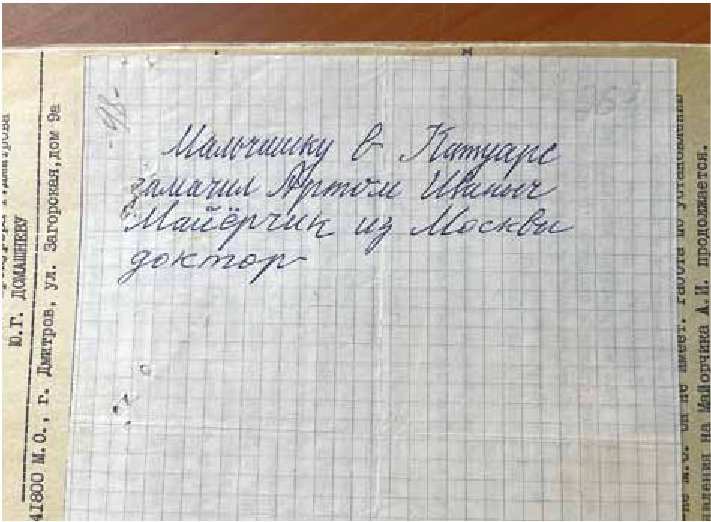 -98-
Мальчишку в Катуаре
замачил Артём Иваныч
Майёрчик из Москвы
доктор
Ю.Г. ДОМАШНЕВУ
41800 М.О., г. Дмитров, ул. Загорская, дом 9а
не имеет. Работа по установлению
явления на Майорчика А.И. продолжается.